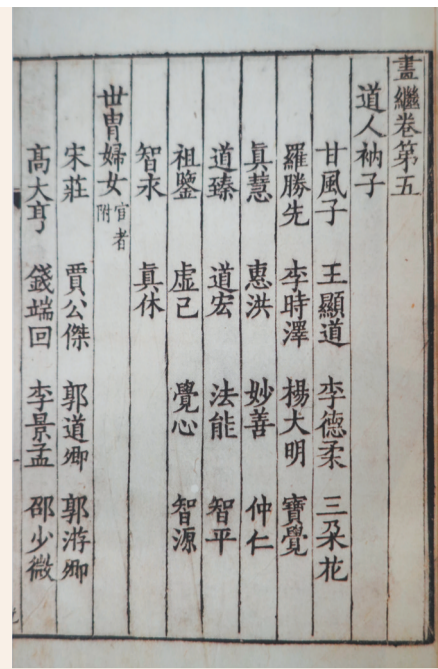 畫繼卷第五
道人衲子
甘風子 王顯道 李德柔 三朶花
羅勝先 李時澤 楊大明 寶覺
眞慧 惠洪 妙善 仲仁
道臻 道宏 法能 智平
祖鑒 虛己 覺心 智源
智永 眞休
世胄婦女宦者附
宋莊 賈公傑 郭道卿 郭游卿
髙大亨 錢端回 李景孟 邵少微